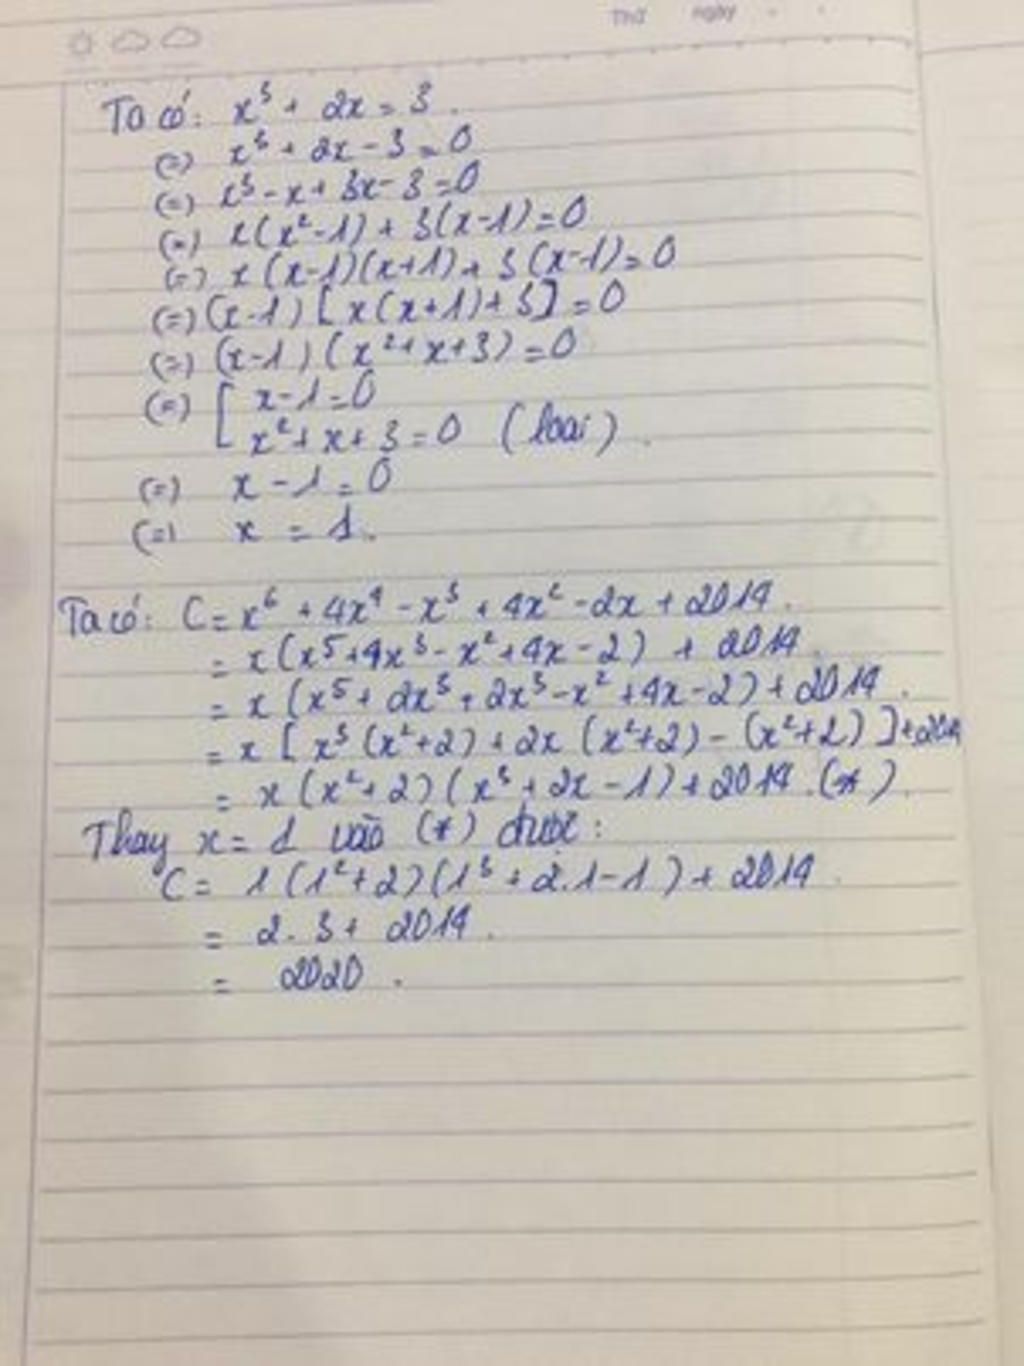 Thứ ngày
Ta có: x³ + 2x = 3.
(=) x³ + 2x - 3 = 0
(=) x³ - x + 3x - 3 = 0
(=) x(x² - 1) + 3(x - 1) = 0
(=) x(x-1)(x+1) + 3(x-1) = 0
(=) (x-1)[x(x+1)+3] = 0
(=) (x-1)(x²+x+3) = 0
(=) [ x-1=0
x²+x+3=0 (loại).
(=) x - 1 = 0
(=) x = 1.
Ta có: C = x⁶ + 4x⁴ - x³ + 4x² - 2x + 2014.
= x(x⁵+4x³-x²+4x-2) + 2014.
= x(x⁵+2x³+2x³-x²+4x-2)+2014.
= x[x³(x²+2)+2x(x²+2)-(x²+2)]+2014
= x(x²+2)(x³+2x-1)+2014.(*).
Thay x = 1 vào (*) được:
C = 1(1²+2)(1³+2.1-1)+2014.
= 2.3+2014.
= 2020.